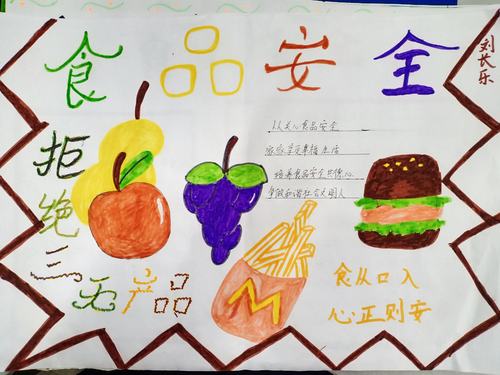 食品安全
刘长乐
人人关心食品安全
家家享受幸福生活
培养食品安全共传心
争做和谐社会文明人
拒绝
三无产品
M
食从口入
心正则安